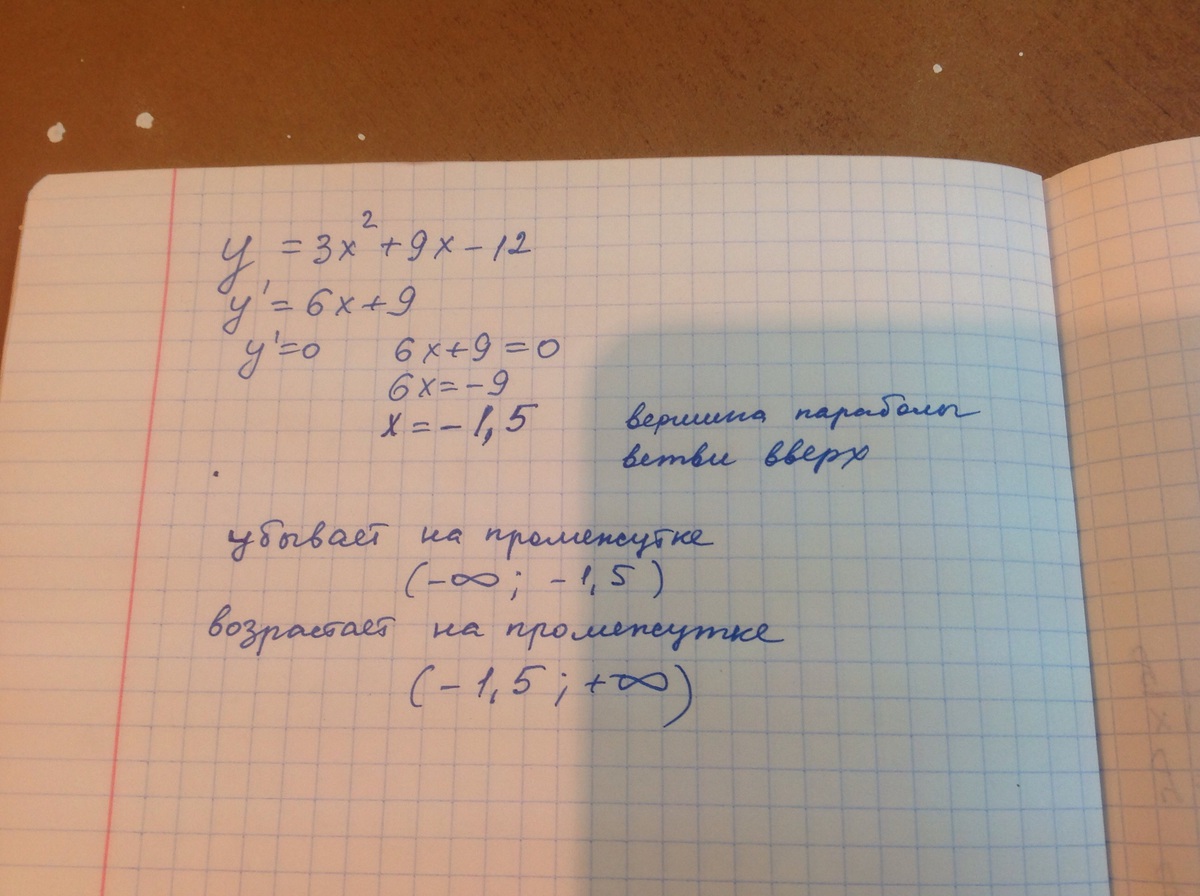 y = 3x² + 9x - 12
y' = 6x + 9
y' = 0 6x + 9 = 0
6x = - 9
x = - 1,5
вершина параболы
ветви вверх
убывает на промежутке
(-∞; - 1,5)
возрастает на промежутке
(- 1,5 ; +∞)